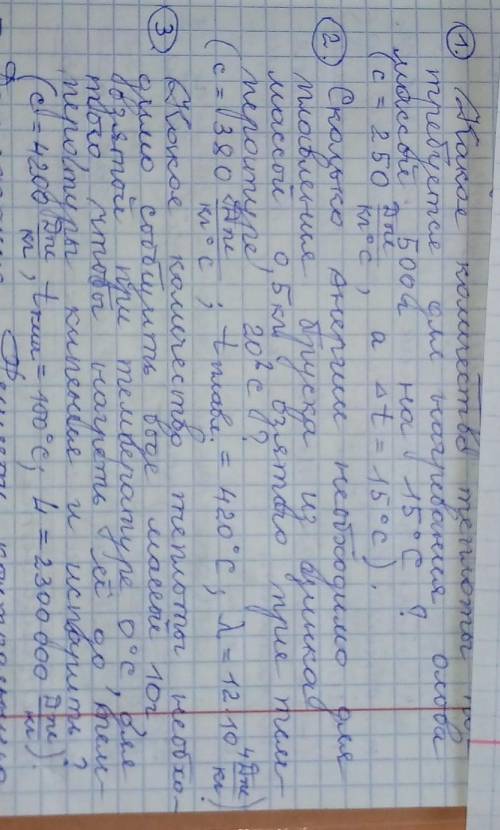 1. Какое количество теплоты по-
требуется для нагревания олова
массой 500г на 15°С ?
(с = 250 Дж/кг°С, а Δt = 15°С).
2. Сколько энергии необходимо для
плавления бруска из цинка
массой 0,5 кг, взятого при тем-
пературе 20°С ?
(с = 380 Дж/кг°С ; t плавл. = 420°С ; λ = 12·10⁴ Дж/кг)
3. Какое количество теплоты необхо-
димо сообщить воде массой 10г
взятой при температуре 0°С, для
того чтобы нагреть её до тем-
пературы кипения и испарить ?
(с = 4200 Дж/кг, t кип = 100°С, L = 2300 000 Дж/кг).
Решение контрольную